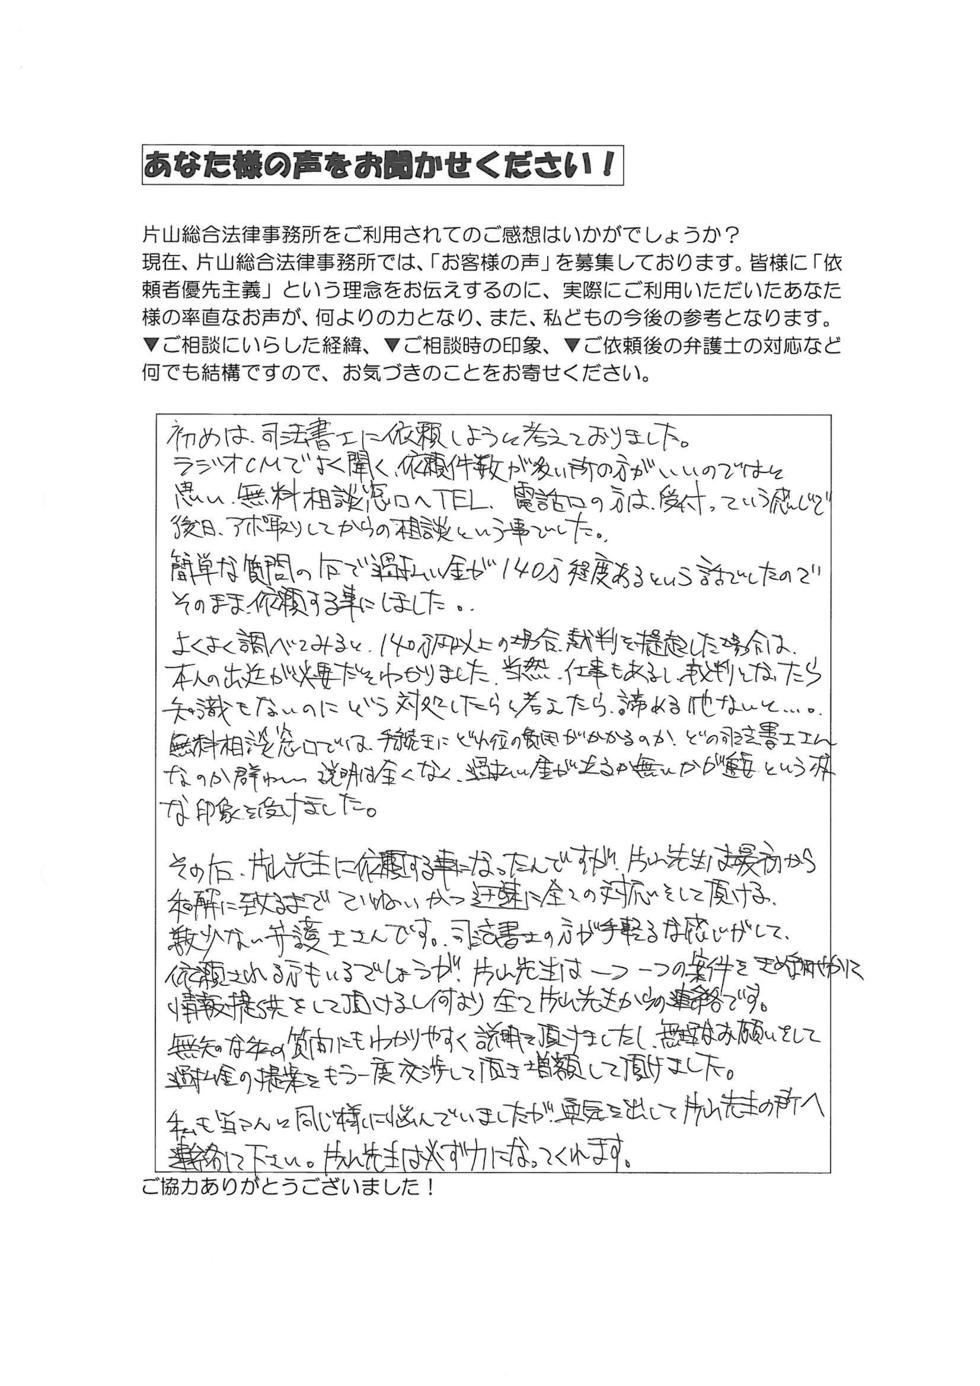 あなた様の声をお聞かせください！
片山総合法律事務所をご利用されてのご感想はいかがでしょうか？
現在、片山総合法律事務所では、「お客様の声」を募集しております。皆様に「依
頼者優先主義」という理念をお伝えするのに、実際にご利用いただいたあなた
様の率直なお声が、何よりの力となり、また、私どもの今後の参考となります。
▼ご相談にいらした経緯、▼ご相談時の印象、▼ご依頼後の弁護士の対応など
何でも結構ですので、お気づきのことをお寄せください。
初めは、司法書士に依頼しようと考えておりました。
ラジオCMでよく聞く、依頼件数が多い所の方がいいのではと
思い、無料相談窓口へTEL、電話口の方は、受付っていう感じで
後日、アポ取りしてからの相談という事でした。
簡単な質問の后で過払い金が140万程度あるという話でしたので
そのまま依頼する事にしました。
よくよく調べてみると、140万円以上の場合、裁判を提起した場合は、
本人の出廷が必要だとわかりました。当然、仕事もあるし、裁判となったら
知識もないのにどう対処したらと考えたら、諦める他ないと…。
無料相談窓口では、手続きにどれ位の費用がかかるのか、どの司法書士さん
なのか詳しい説明は全くなく、過払い金が有るか無いかが重要という様
な印象を受けました。
その后、片山先生に依頼する事になったんですが、片山先生は最初から
和解に致るまでていねいかつ迅速に全ての対応をして頂ける、
数少ない弁護士さんです。司法書士の方が手軽るな感じがして、
依頼される方もいるでしょうが、片山先生は一つ一つの案件をきめ細やかに
情報提供をして頂けるし何より全て片山先生からの連絡です。
無知な私の質問にもわかりやすく説明を頂けましたし、無理なお願いをして
過払金の提案をもう一度交渉して頂き増額して頂けました。
私も皆さんと同じ様に悩んでいましたが、勇気を出して片山先生の所へ
連絡して下さい。片山先生は必ず力になってくれます。
ご協力ありがとうございました！